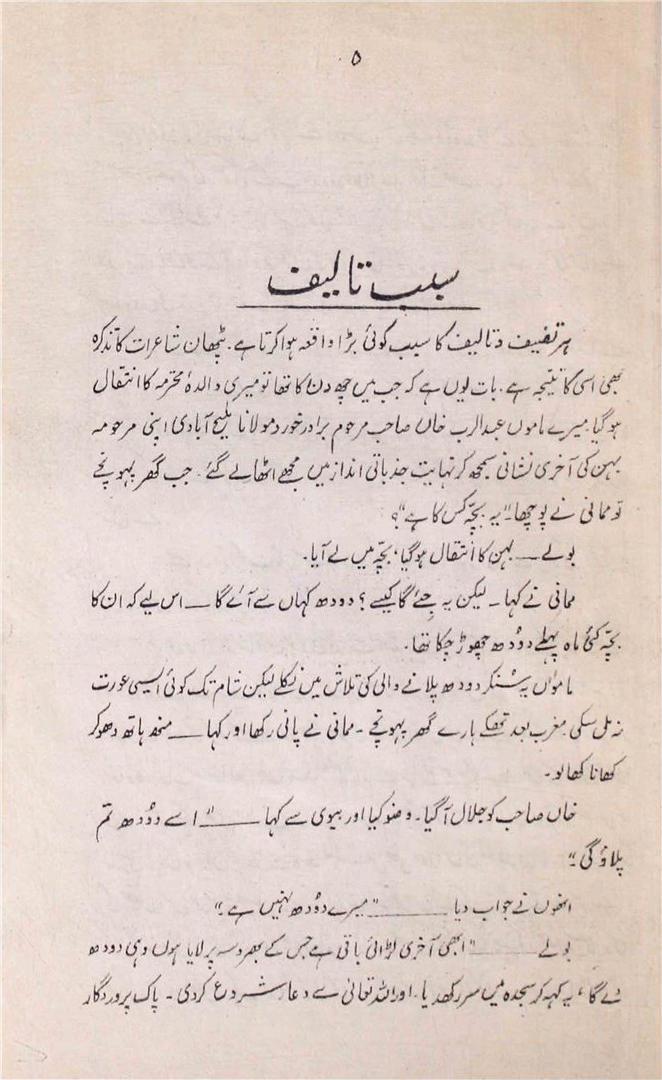 ۵
سبب تالیف
ہر تصنیف و تالیف کا سبب کوئی بڑا واقعہ ہوا کرتا ہے۔ پٹھان شاعرات کا تذکرہ
بھی اسی کا نتیجہ ہے۔ بات یوں ہے کہ جب میں چھ دن کا تھا تو میری والدۂ محترمہ کا انتقال
ہو گیا۔ میرے ماموں عبدالرب خاں صاحب مرحوم برادر خورد مولانا ملیح آبادی اپنی مرحومہ
بہن کی آخری نشانی سمجھ کر نہایت جذباتی انداز میں مجھے اٹھا لے گئے۔ جب گھر پہونچے
تو ممانی نے پوچھا۔ "یہ بچّہ کس کا ہے"؟
بولے ــــ بہن کا انتقال ہو گیا، بچّہ میں لے آیا۔
ممانی نے کہا ۔ لیکن یہ جئے گا کیسے؟ دودھ کہاں سے آئے گا ــــ اس لیے کہ ان کا
بچّہ کئی ماہ پہلے دودھ چھوڑ چکا تھا۔
ماموں یہ سنکر دودھ پلانے والی کی تلاش میں نکلے لیکن شام تک کوئی ایسی عورت
نہ مل سکی۔ مغرب بعد تھکے ہارے گھر پہونچے ۔ ممانی نے پانی رکھا اور کہا ــــ منھ ہاتھ دھو کر
کھانا کھا لو۔
خاں صاحب کو جلال آگیا۔ وضو کیا اور بیوی سے کہا ــــ "اسے دودھ تم
پلاؤ گی"
انھوں نے جواب دیا ــــ "میرے دودھ نہیں ہے۔"
بولے ــــ "ابھی آخری لڑائی باقی ہے جس کے بھروسہ پر لایا ہوں وہی دودھ
دے گا، یہ کہہ کر سجدہ میں سر رکھ دیا۔ اور اللہ تعالیٰ سے دعا شروع کر دی ۔ پاک پروردگار